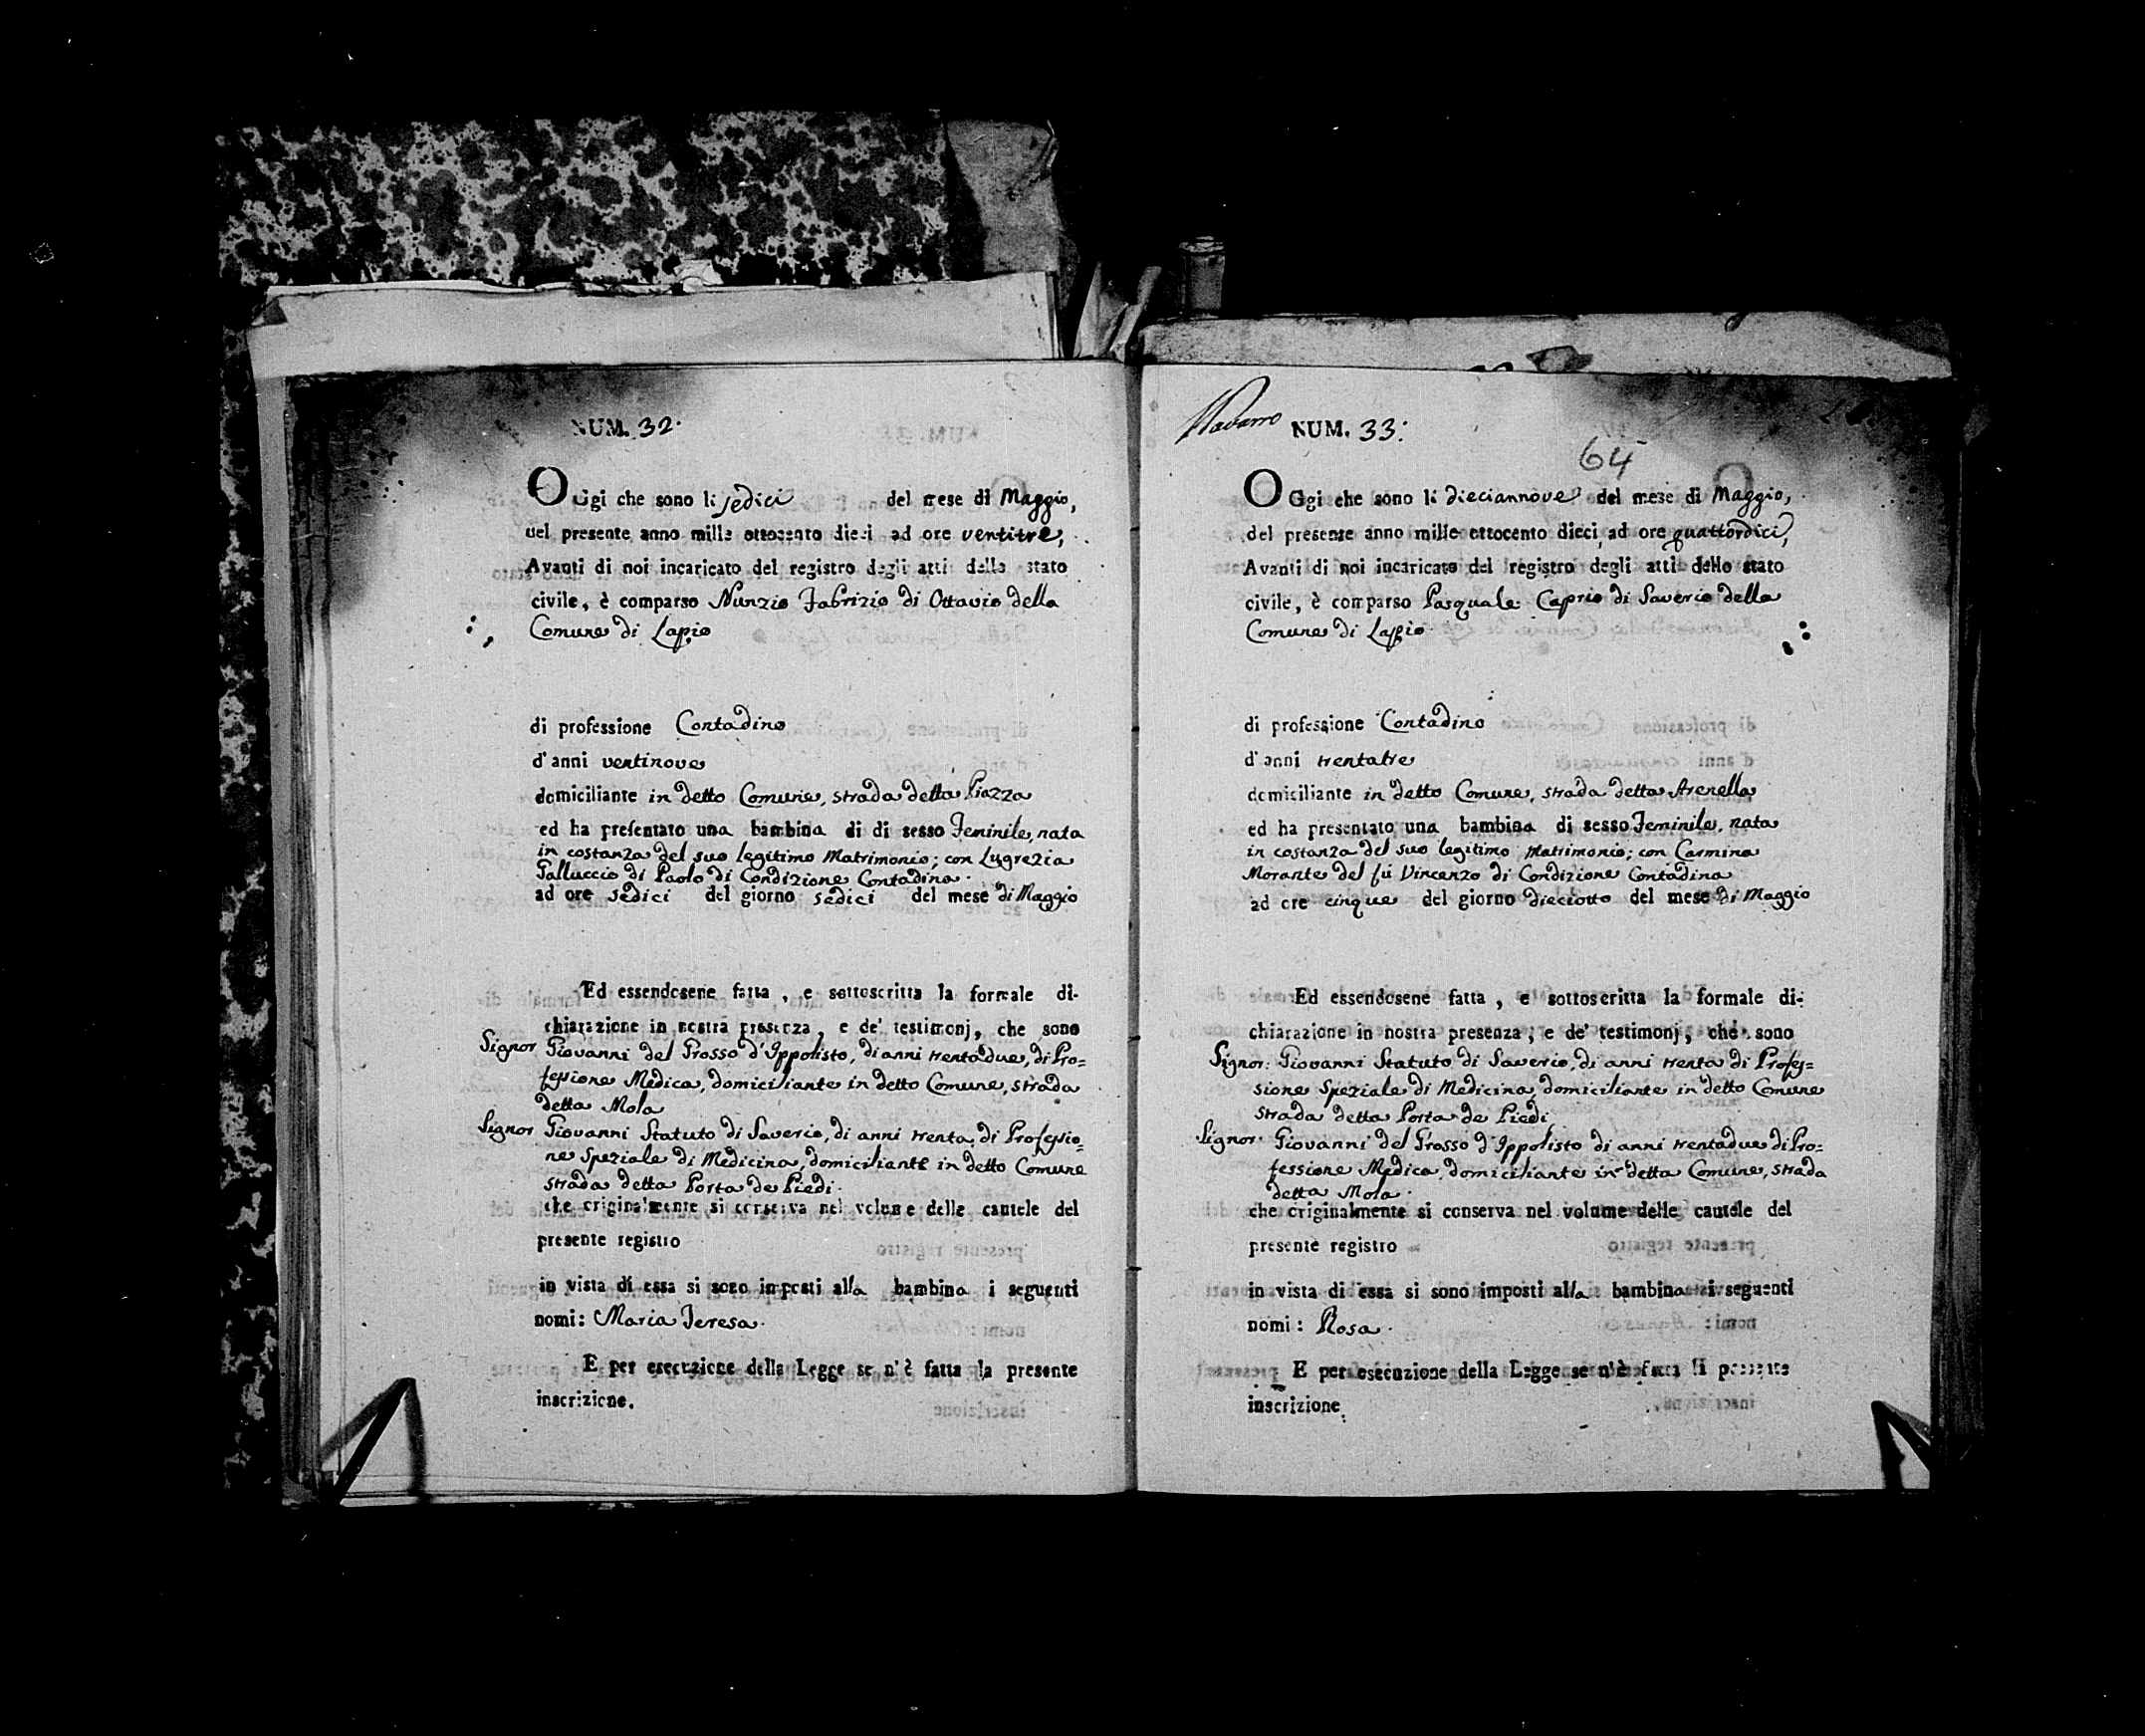 NUM. 32.
OGgi che sono li sedici del mese di Maggio,
del presente anno mille ottocento dieci ad ore ventitre,
Avanti di noi incaricato del registro degli atti dello stato
civile, è comparso Nunzio Fabrizio di Ottavio della
Comune di Lapio
di professione Contadino
d'anni ventinove
domiciliante in detto Comune, strada detta Piazza
ed ha presentato una bambina di di sesso Feminile, nata
in costanza del suo legitimo Matrimonio; con Lugrezia
Galluccio di Paolo di Condizione Contadina.
ad ore sedici del giorno sedici del mese di Maggio
Ed essendosene fatta, e sottoscritta la formale di-
chiarazione in nostra presenza, e de' testimonj, che sono
Signor Giovanni del Grosso d'Ippolisto, di anni trentadue, di Pro=
fessione Medica, domiciliante in detto Comune, strada
detta Mola
Signor Giovanni Statuto di Saverio, di anni trenta di Professio=
ne Speziale di Medicina, domiciliante in detto Comune
strada detta Porta de Piedi.
che originalmente si conserva nel volume delle cautele del
presente registro
in vista di essa si sono imposti alla bambina i seguenti
nomi: Maria Teresa.
E per esecuzione della Legge se n'è fatta la presente
inscrizione.
Navarro NUM. 33.
64
OGgi che sono li dieciannove del mese di Maggio,
del presente anno mille ottocento dieci, ad ore quattordici,
Avanti di noi incaricato del registro degli atti dello stato
civile, è comparso Pasquale Caprio di Saverio della
Comune di Lapio.
di professione Contadino
d'anni trentatre
domiciliante in detto Comune, strada detta Arenella
ed ha presentato una bambina di sesso Feminile, nata
in costanza del suo legitimo Matrimonio; con Carmina
Morante del fù Vincenzo di Condizione Contadina
ad ore cinque del giorno dieciotto del mese di Maggio
Ed essendosene fatta, e sottoscritta la formale di-
chiarazione in nostra presenza, e de' testimonj, che sono
Signor: Giovanni Statuto di Saverio, di anni trenta di Profes=
sione Speziale di Medicina, domiciliante in detto Comune
strada detta Porta de Piedi
Signor: Giovanni del Grosso d'Ippolisto di anni trentadue di Pro=
fessione Medica, domiciliante in detta Comune, strada
detta Mola.
che originalmente si conserva nel volume delle cautele del
presente registro
in vista di essa si sono imposti alla bambina i seguenti
nomi: Rosa.
E per esecuzione della Legge se n'è fatta la presente
inscrizione.